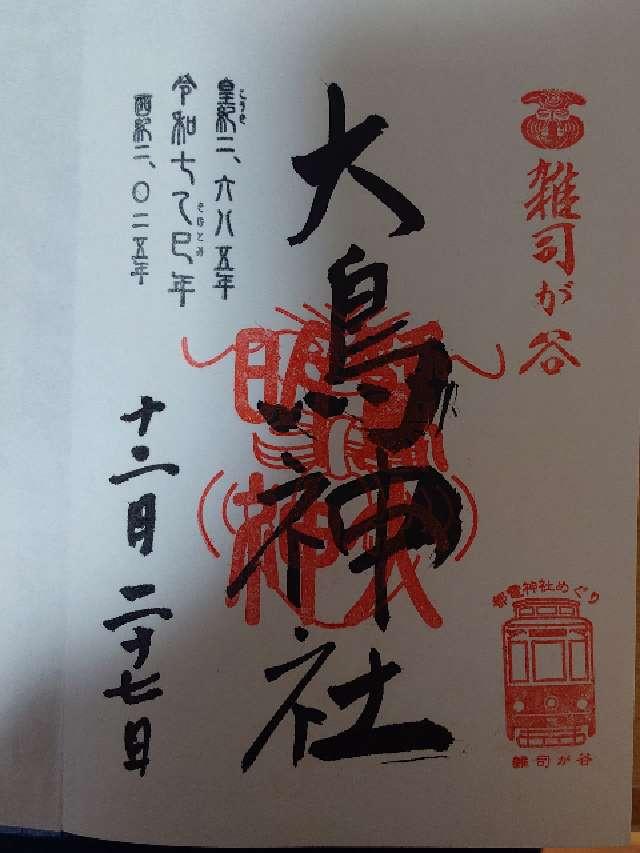 雑司が谷
大鳥神社
皇紀二、六八五年
こうき
令和七乙巳年
きのとみ
西紀二、〇二五年
十二月二十七日
都電神社めぐり
雑司が谷